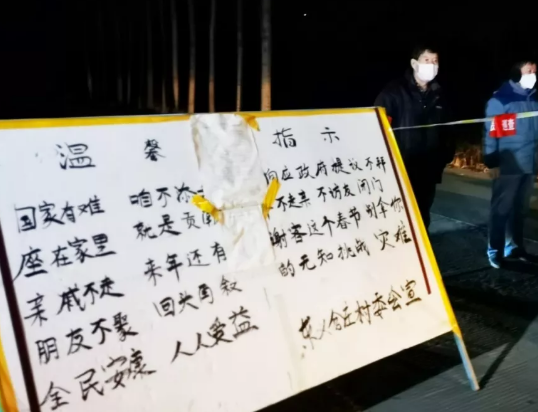 温馨 指示
国家有难 咱不添
座在家里 就是贡
亲戚不走 来年还有
朋友不聚 回头再叙
全民安康 人人受益
应政府提议不拜
不走亲 不访友 闭门
谢客这个春节 别拿你
的无知挑战 灾难
村委会宣